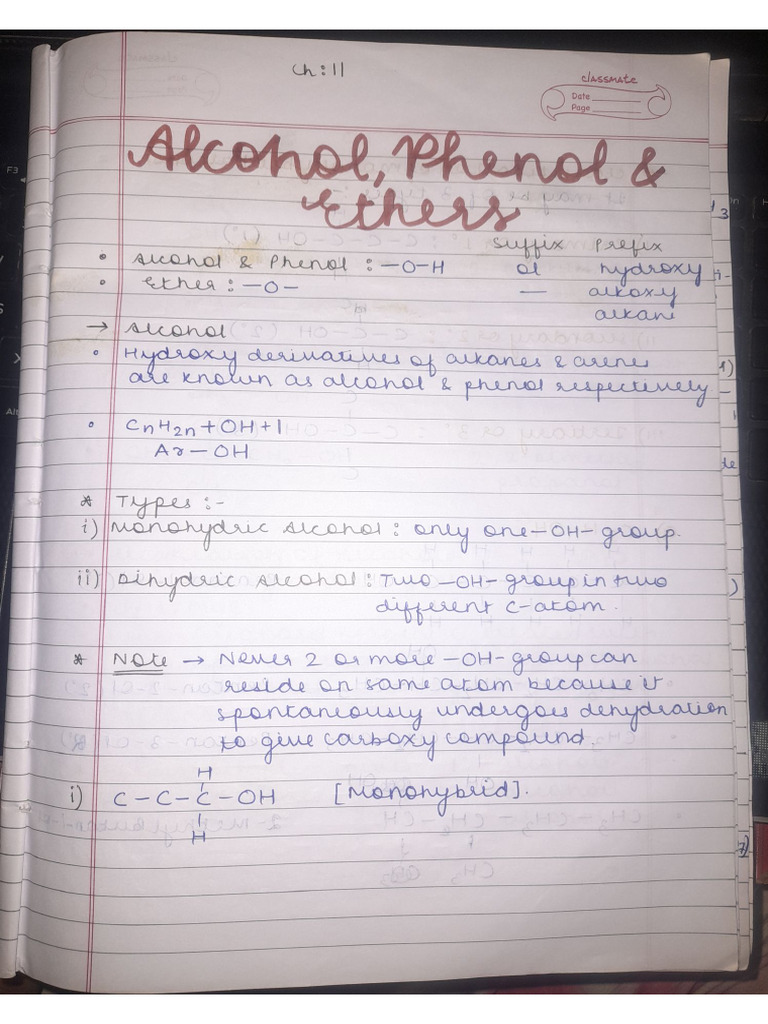 Ch: 11
classmate
Date
Page
Alcohol, Phenol &
Ethers
Suffix Prefix
• Alcohol & Phenol : —O—H ol hydroxy
• Ether : —O— — alkoxy
alkane
→ Alcohol
• Hydroxy derivatives of alkanes & arenes
are known as alcohol & phenol respectively
• CnH2n+OH+1
Ar—OH
* Types :-
i) Monohydric Alcohol : only one —OH- group.
ii) Dihydric Alcohol : Two —OH- group in two
different C-atom.
* Note → Never 2 or more —OH- group can
reside on same atom because it
spontaneously undergoes dehydration
to give carboxy compound.
H
i) C — C — C — OH [Monohybrid].
H